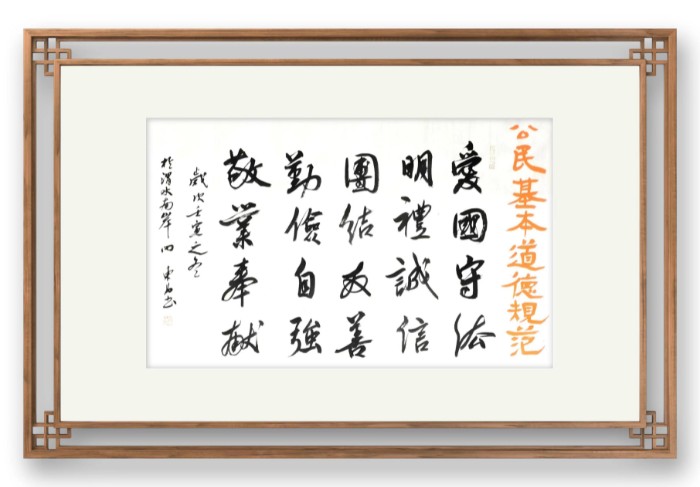 公民基本道德規范
愛國守法
明禮誠信
團結友善
勤儉自強
敬業奉献
歲次壬寅之冬
於渭水南岸